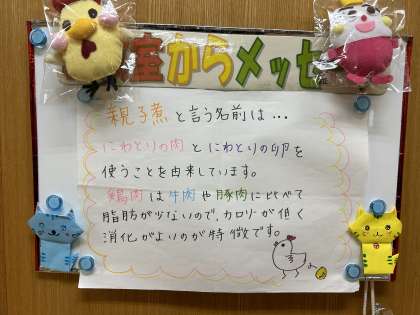 座からメッセ
親子煮と言う名前は…
にわとりの肉とにわとりの卵を
使うことを由来しています。
鶏肉は牛肉や豚肉に比べて
脂肪が少ないので、カロリーが低く
消化がよいのが特徴です。